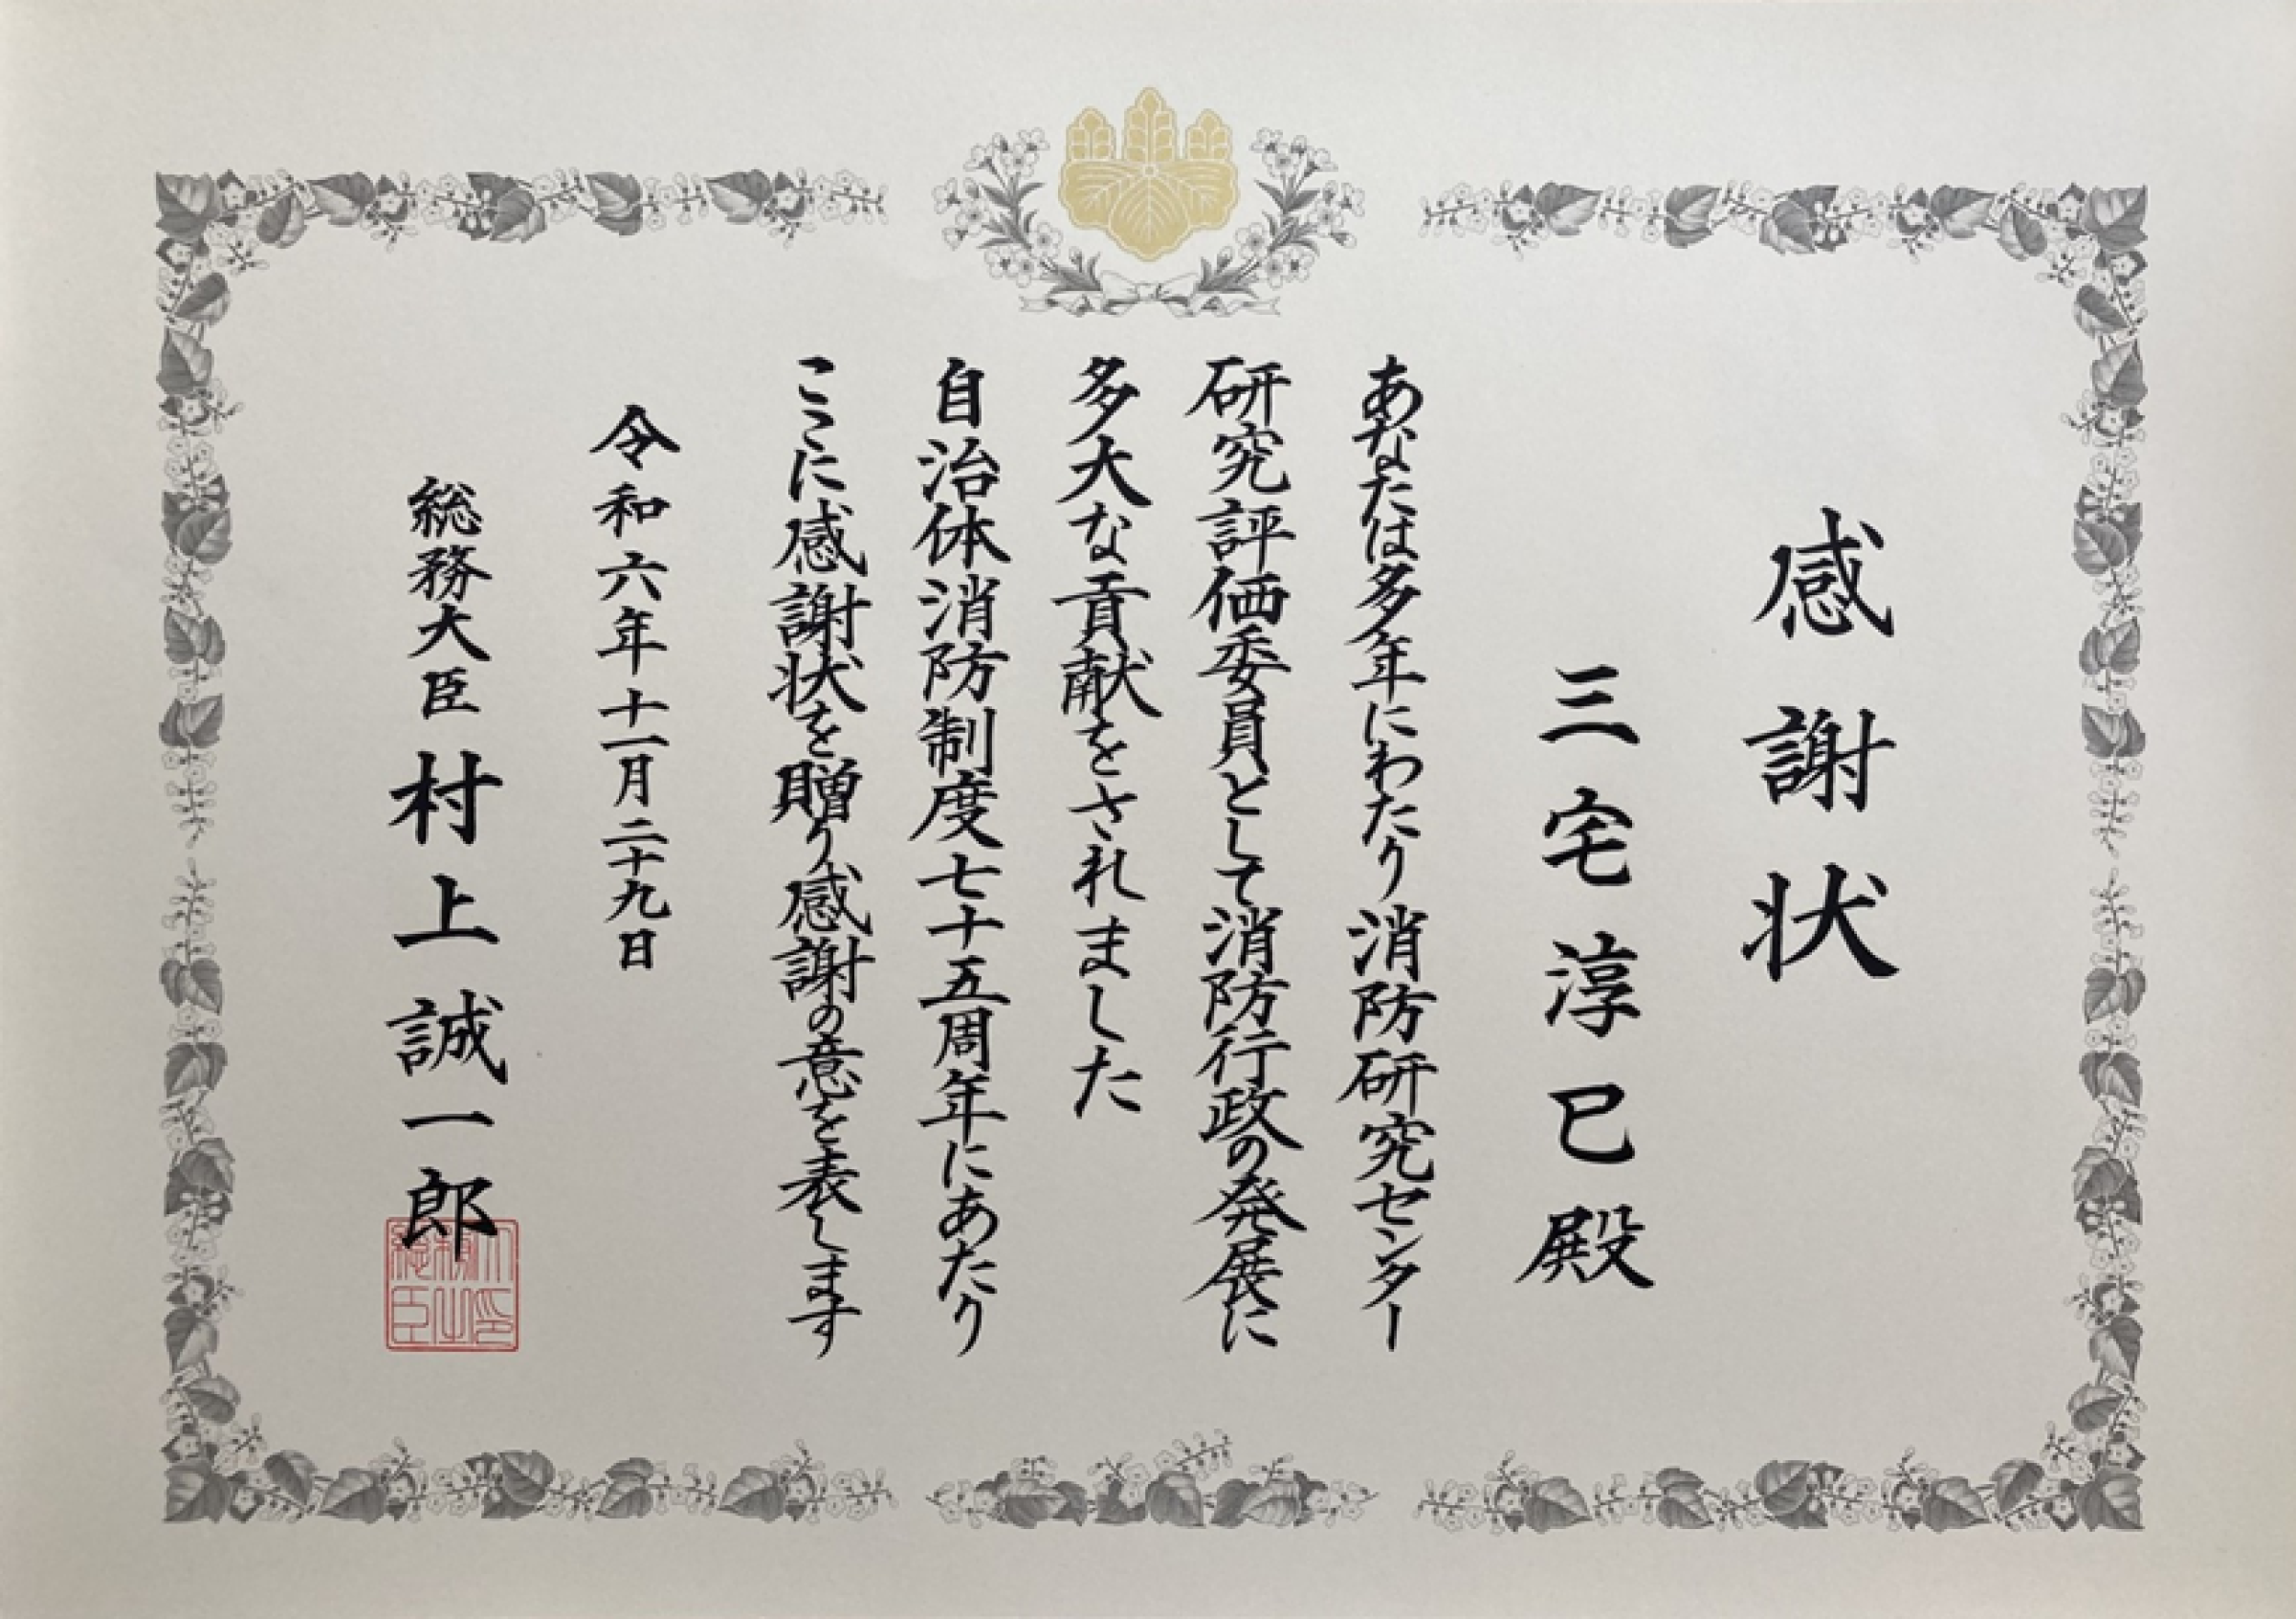 感謝状
三宅淳巳殿
あなたは多年にわたり消防研究センター
研究評価委員として消防行政の発展に
多大な貢献をされました
自治体消防制度七十五周年にあたり
ここに感謝状を贈り感謝の意を表します
令和六年十一月二十九日
総務大臣 村上誠一郎
総務大臣之印